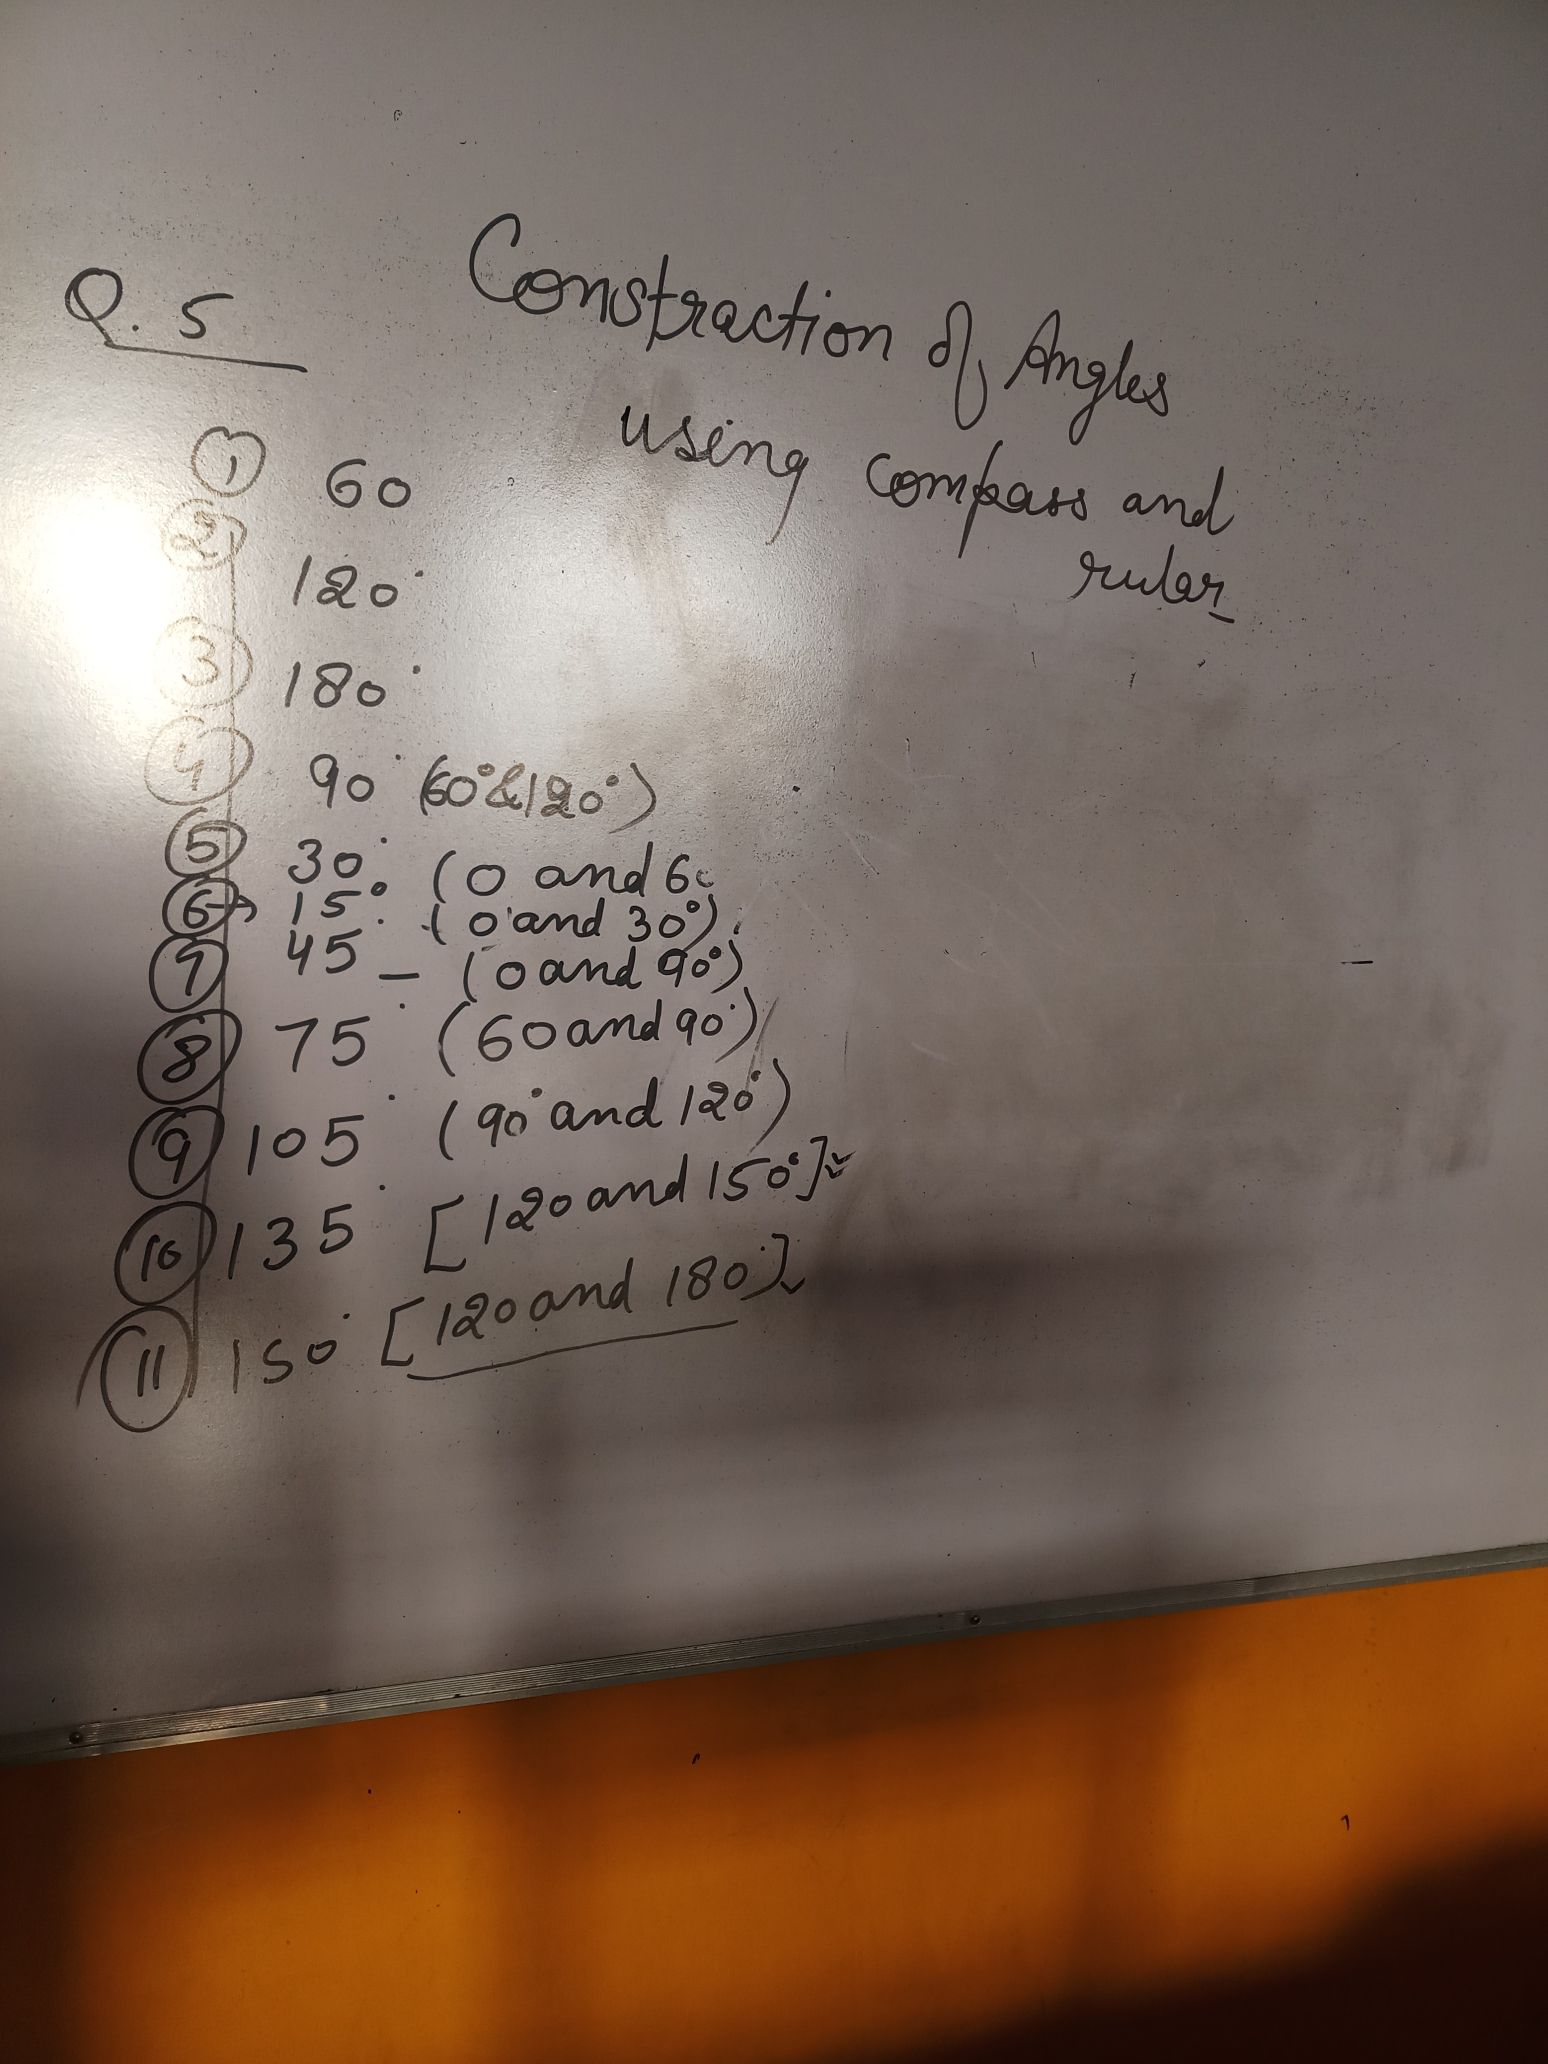 Q. 5
Constraction of Angles
using compass and
ruler
① 60
② 120°
③ 180°
④ 90° (60° & 120°)
⑤ 30° (0 and 60
⑥→ 15° (0 and 30°)
⑦ 45° - (0 and 90°)
⑧ 75° (60 and 90°)
⑨ 105° (90° and 120°)
⑩ 135° [120 and 150°]
⑪ 150° [120 and 180°]